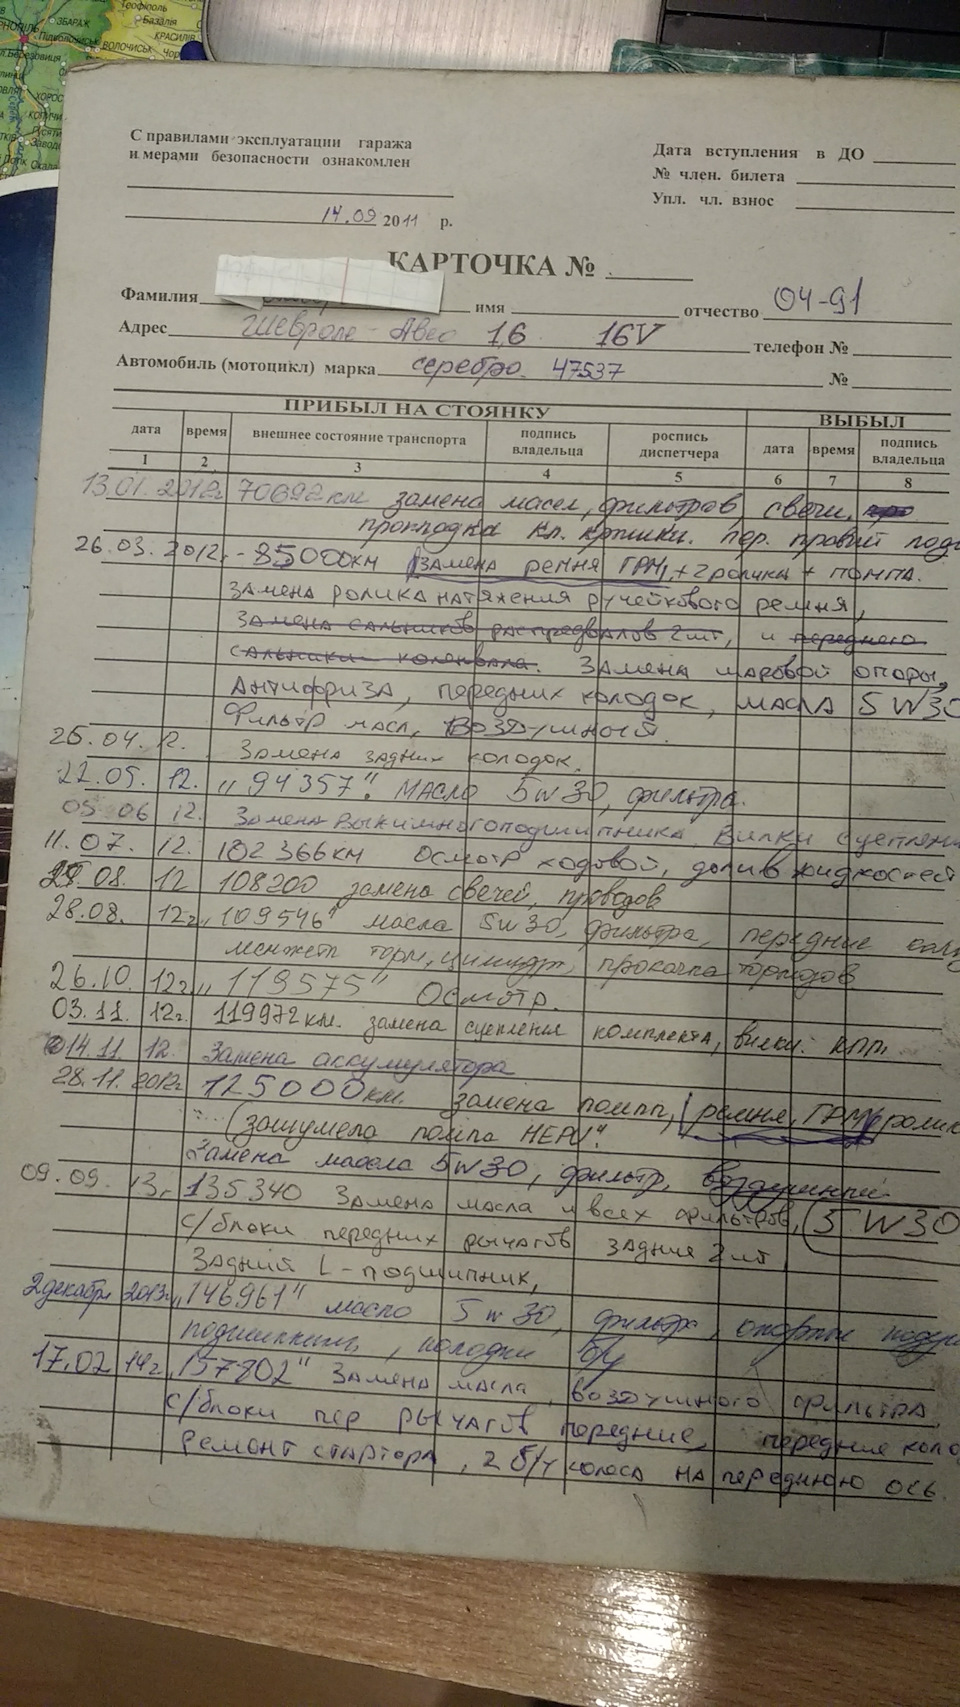 С правилами эксплуатации гаража
и мерами безопасности ознакомлен
14.09 2011 р.
Дата вступления в ДО
№ член. билета
Упл. чл. взнос
КАРТОЧКА №
Фамилия имя отчество 04-91
Адрес Шевроле - Авео 1,6 16V телефон №
Автомобиль (мотоцикл) марка серебро. 47537 №
ПРИБЫЛ НА СТОЯНКУ ВЫБЫЛ
дата время внешнее состояние транспорта подпись владельца роспись диспетчера дата время подпись владельца
1 2 3 4 5 6 7 8
13.01.2012г 70692км замена масел, фильтров, свечи.
прокладка кл. крышки. пер. правый
26.03.2012г. - 85000км (замена ремня ГРМ, + 2 ролика + помпа.
замена ролика натяжения ручейкового ремня,
замена сальников распредвалов 2шт, и переднего
сальники коленвала. Замена шаровой опоры,
Антифриза, передних колодок, масла 5W30
Фильтр масл, воздушный.
25.04. 12. Замена задних колодок.
22.05. 12. „94357" масло 5w30, фильтра.
05 06 12. Замена выжимного подшипника. Вилки
11.07. 12. 102366км Осмотр ходовой, долив жидкостей
08. 12 108200 замена свечей, проводов
28.08. 12г „109546" масла 5w30, фильтра, передние
манжеты торм, цилиндр, прокачка тормозов
26.10. 12г „119575" Осмотр.
03.11. 12г. 119972км. замена сцепления комплекта, вилки. КПП.
14.11 12. Замена аккумулятора
28.11. 2012г 125000км. замена помпы, (ремня, ГРМ)
(зашумела помпа HEPU".
Замена масла 5W30, фильтр, воздушный
09.09. 13. 135340 Замена масла и всех фильтров, 5W30
с/блоки передних рычагов задние 2шт
Задний L-подшипник,
2 декабр. 2013г. „146961" масло 5w30, фильтра, опорные
подшипники, колодки б/у
17.02 14г. „157802" Замена масла, воздушного фильтра
с/блоки пер рычагов передние, передние
Ремонт стартора, 2 б/у колоса на переднюю ось.